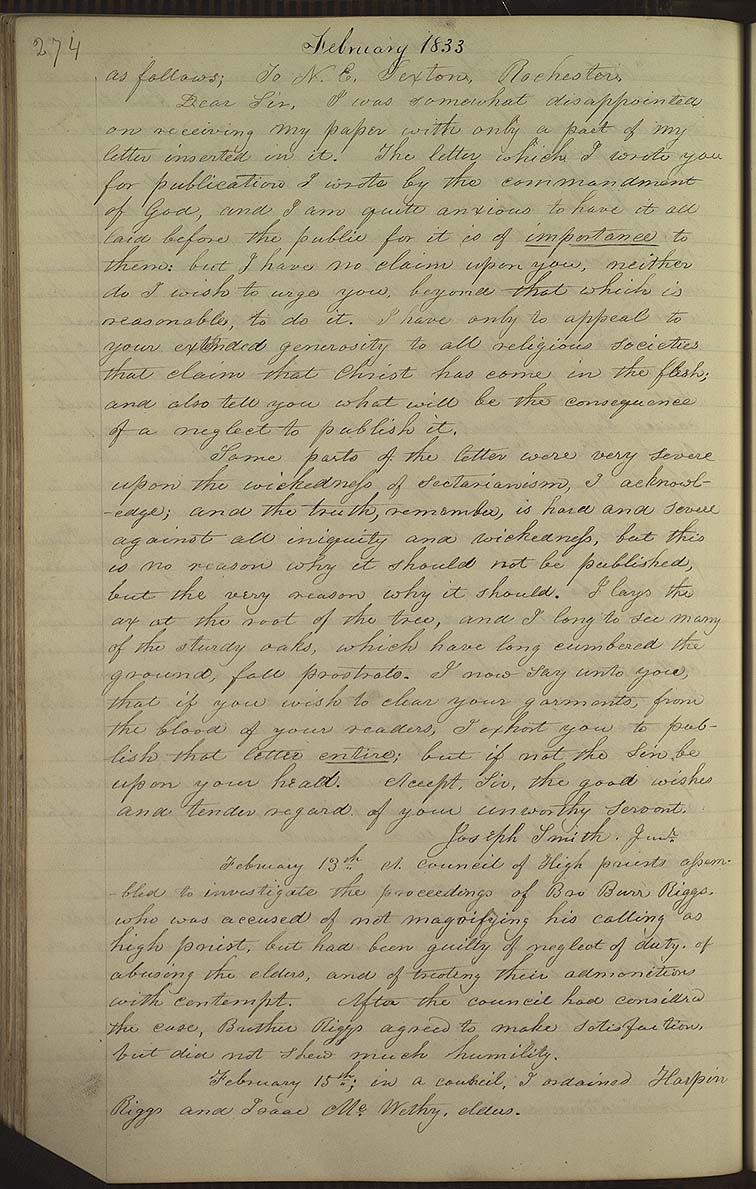 274
February 1833
as follows; To N. E. Sexton, Rochester,
Dear Sir, I was somewhat disappointed
on receiving my paper with only a part of my
letter inserted in it. The letter which I wrote you
for publication I wrote by the commandment
of God, and I am quite anxious to have it all
laid before the public for it is of importance to
them: but I have no claim upon you, neither
do I wish to urge you, beyond that which is
reasonable, to do it. I have only to appeal to
your extended generosity to all religious societies
that claim that Christ has come in the flesh;
and also tell you what will be the consequence
of a neglect to publish it.
Some parts of the letter were very severe
upon the wickedness of sectarianism, I acknowl-
-edge; and the truth, remember, is hard and severe
against all iniquity and wickedness, but this
is no reason why it should not be published,
but the very reason why it should. I lays the
ax at the root of the tree, and I long to see many
of the sturdy oaks, which have long cumbered the
ground, fall prostrate. I now say unto you,
that if you wish to clear your garments, from
the blood of your readers, I exhort you to pub-
lish that letter entire; but if not the sin be
upon your head. Accept, Sir, the good wishes
and tender regard of your unworthy servant.
Joseph Smith. Junr.
February 13th A council of High priests assem-
-bled to investigate the proceedings of Bro Burr Riggs.
who was accused of not magnifying his calling as
high priest, but had been guilty of neglect of duty. of
abusing the elders, and of treating their admonitions
with contempt. After the council had considered
the case, Brother Riggs agreed to make satisfaction,
but did not shew much humility.
February 15th; in a council, I ordained Harpin
Riggs and Isaac Mc Withy, elders.